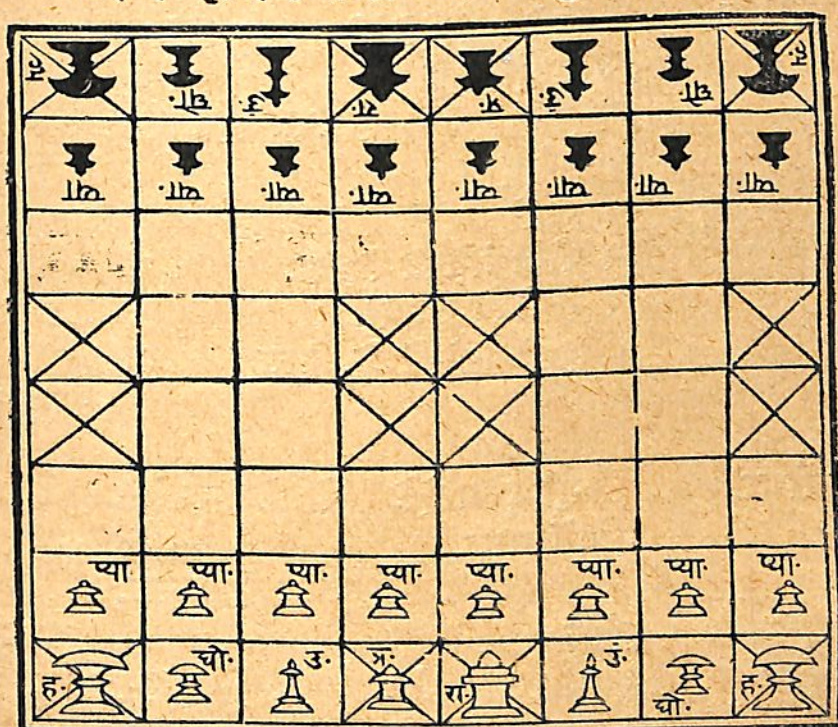 ह. घो. उं. रा. प्र. उं. घो. ह.
प्या प्या. प्या. प्या. प्या. प्या. प्या. प्या.
प्या प्या. प्या. प्या. प्या. प्या. प्या. प्या.
ह. घो. उ. प्र. रा. उं. घो. ह.